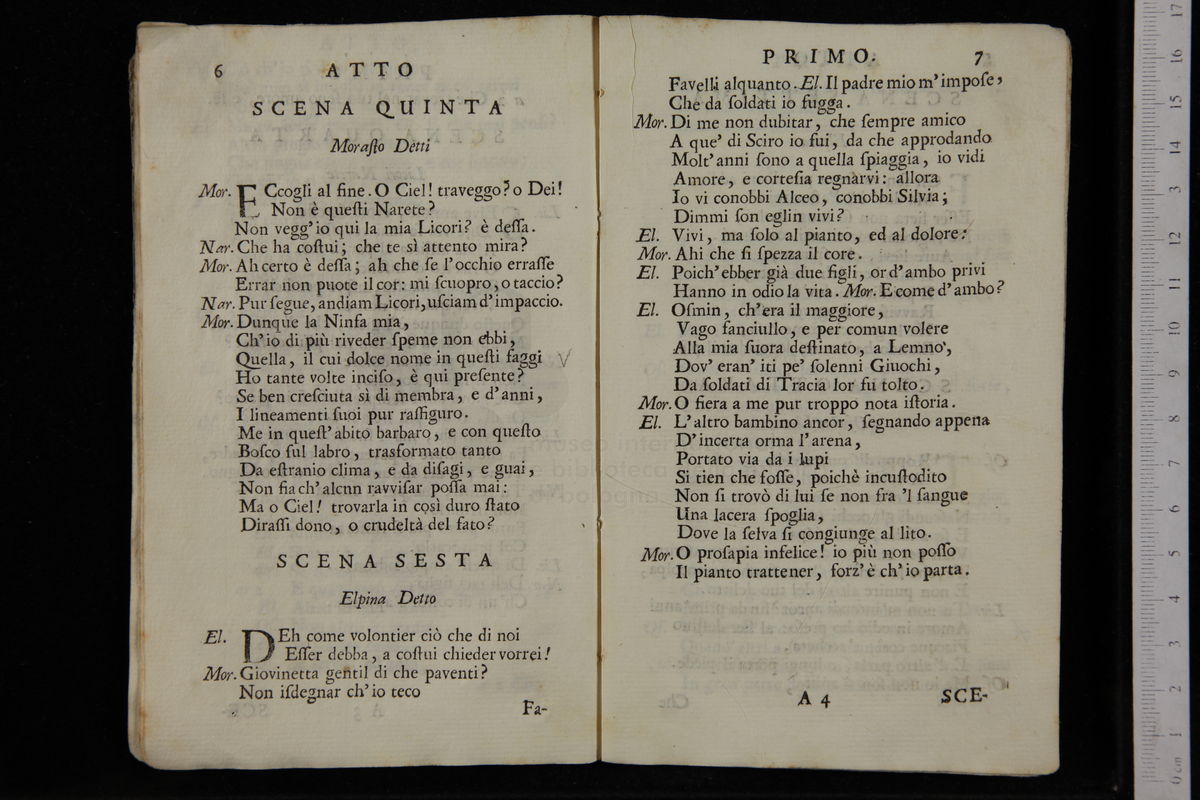 6 ATTO
SCENA QUINTA
Moraſto Detti
Mor. ECcogli al fine. O Ciel! traveggo? o Dei!
Non è queſti Narete?
Non vegg'io qui la mia Licori? è deſſa.
Nar. Che ha coſtui; che te sì attento mira?
Mor. Ah certo è deſſa; ah che ſe l'occhio erraſſe
Errar non puote il cor: mi ſcuopro, o taccio?
Nar. Pur ſegue, andiam Licori, uſciam d'impaccio.
Mor. Dunque la Ninfa mia,
Ch'io di più riveder ſpeme non ebbi,
Quella, il cui dolce nome in queſti faggi
Ho tante volte inciſo, è qui preſente?
Se ben creſciuta sì di membra, e d'anni,
I lineamenti ſuoi pur raffiguro.
Me in queſt'abito barbaro, e con queſto
Boſco ſul labro, trasformato tanto
Da eſtranio clima, e da diſagi, e guai,
Non fia ch'alcnn ravviſar poſſa mai:
Ma o Ciel! trovarla in così duro ſtato
Diraſſi dono, o crudeltà del fato?
SCENA SESTA
Elpina Detto
El. DEh come volontier ciò che di noi
Eſſer debba, a coſtui chieder vorrei!
Mor. Giovinetta gentil di che paventi?
Non iſdegnar ch'io teco
Fa-
PRIMO. 7
Favelli alquanto. El. Il padre mio m'impoſe,
Che da ſoldati io fugga.
Mor. Di me non dubitar, che ſempre amico
A que' di Sciro io fui, da che approdando
Molt'anni ſono a quella ſpiaggia, io vidi
Amore, e corteſia regnarvi: allora
Io vi conobbi Alceo, conobbi Silvia;
Dimmi ſon eglin vivi?
El. Vivi, ma ſolo al pianto, ed al dolore:
Mor. Ahi che ſi ſpezza il core.
El. Poich'ebber già due figli, or d'ambo privi
Hanno in odio la vita. Mor. E come d'ambo?
El. Oſmin, ch'era il maggiore,
Vago fanciullo, e per comun volere
Alla mia ſuora deſtinato, a Lemno,
Dov' eran' iti pe' ſolenni Giuochi,
Da ſoldati di Tracia lor fu tolto.
Mor. O fiera a me pur troppo nota iſtoria.
El. L'altro bambino ancor, ſegnando appena
D'incerta orma l'arena,
Portato via da i lupi
Si tien che foſſe, poichè incuſtodito
Non ſi trovò di lui ſe non fra 'l ſangue
Una lacera ſpoglia,
Dove la ſelva ſi congiunge al lito.
Mor. O proſapia infelice! io più non poſſo
Il pianto trattener, forz'è ch'io parta.
A 4 SCE-